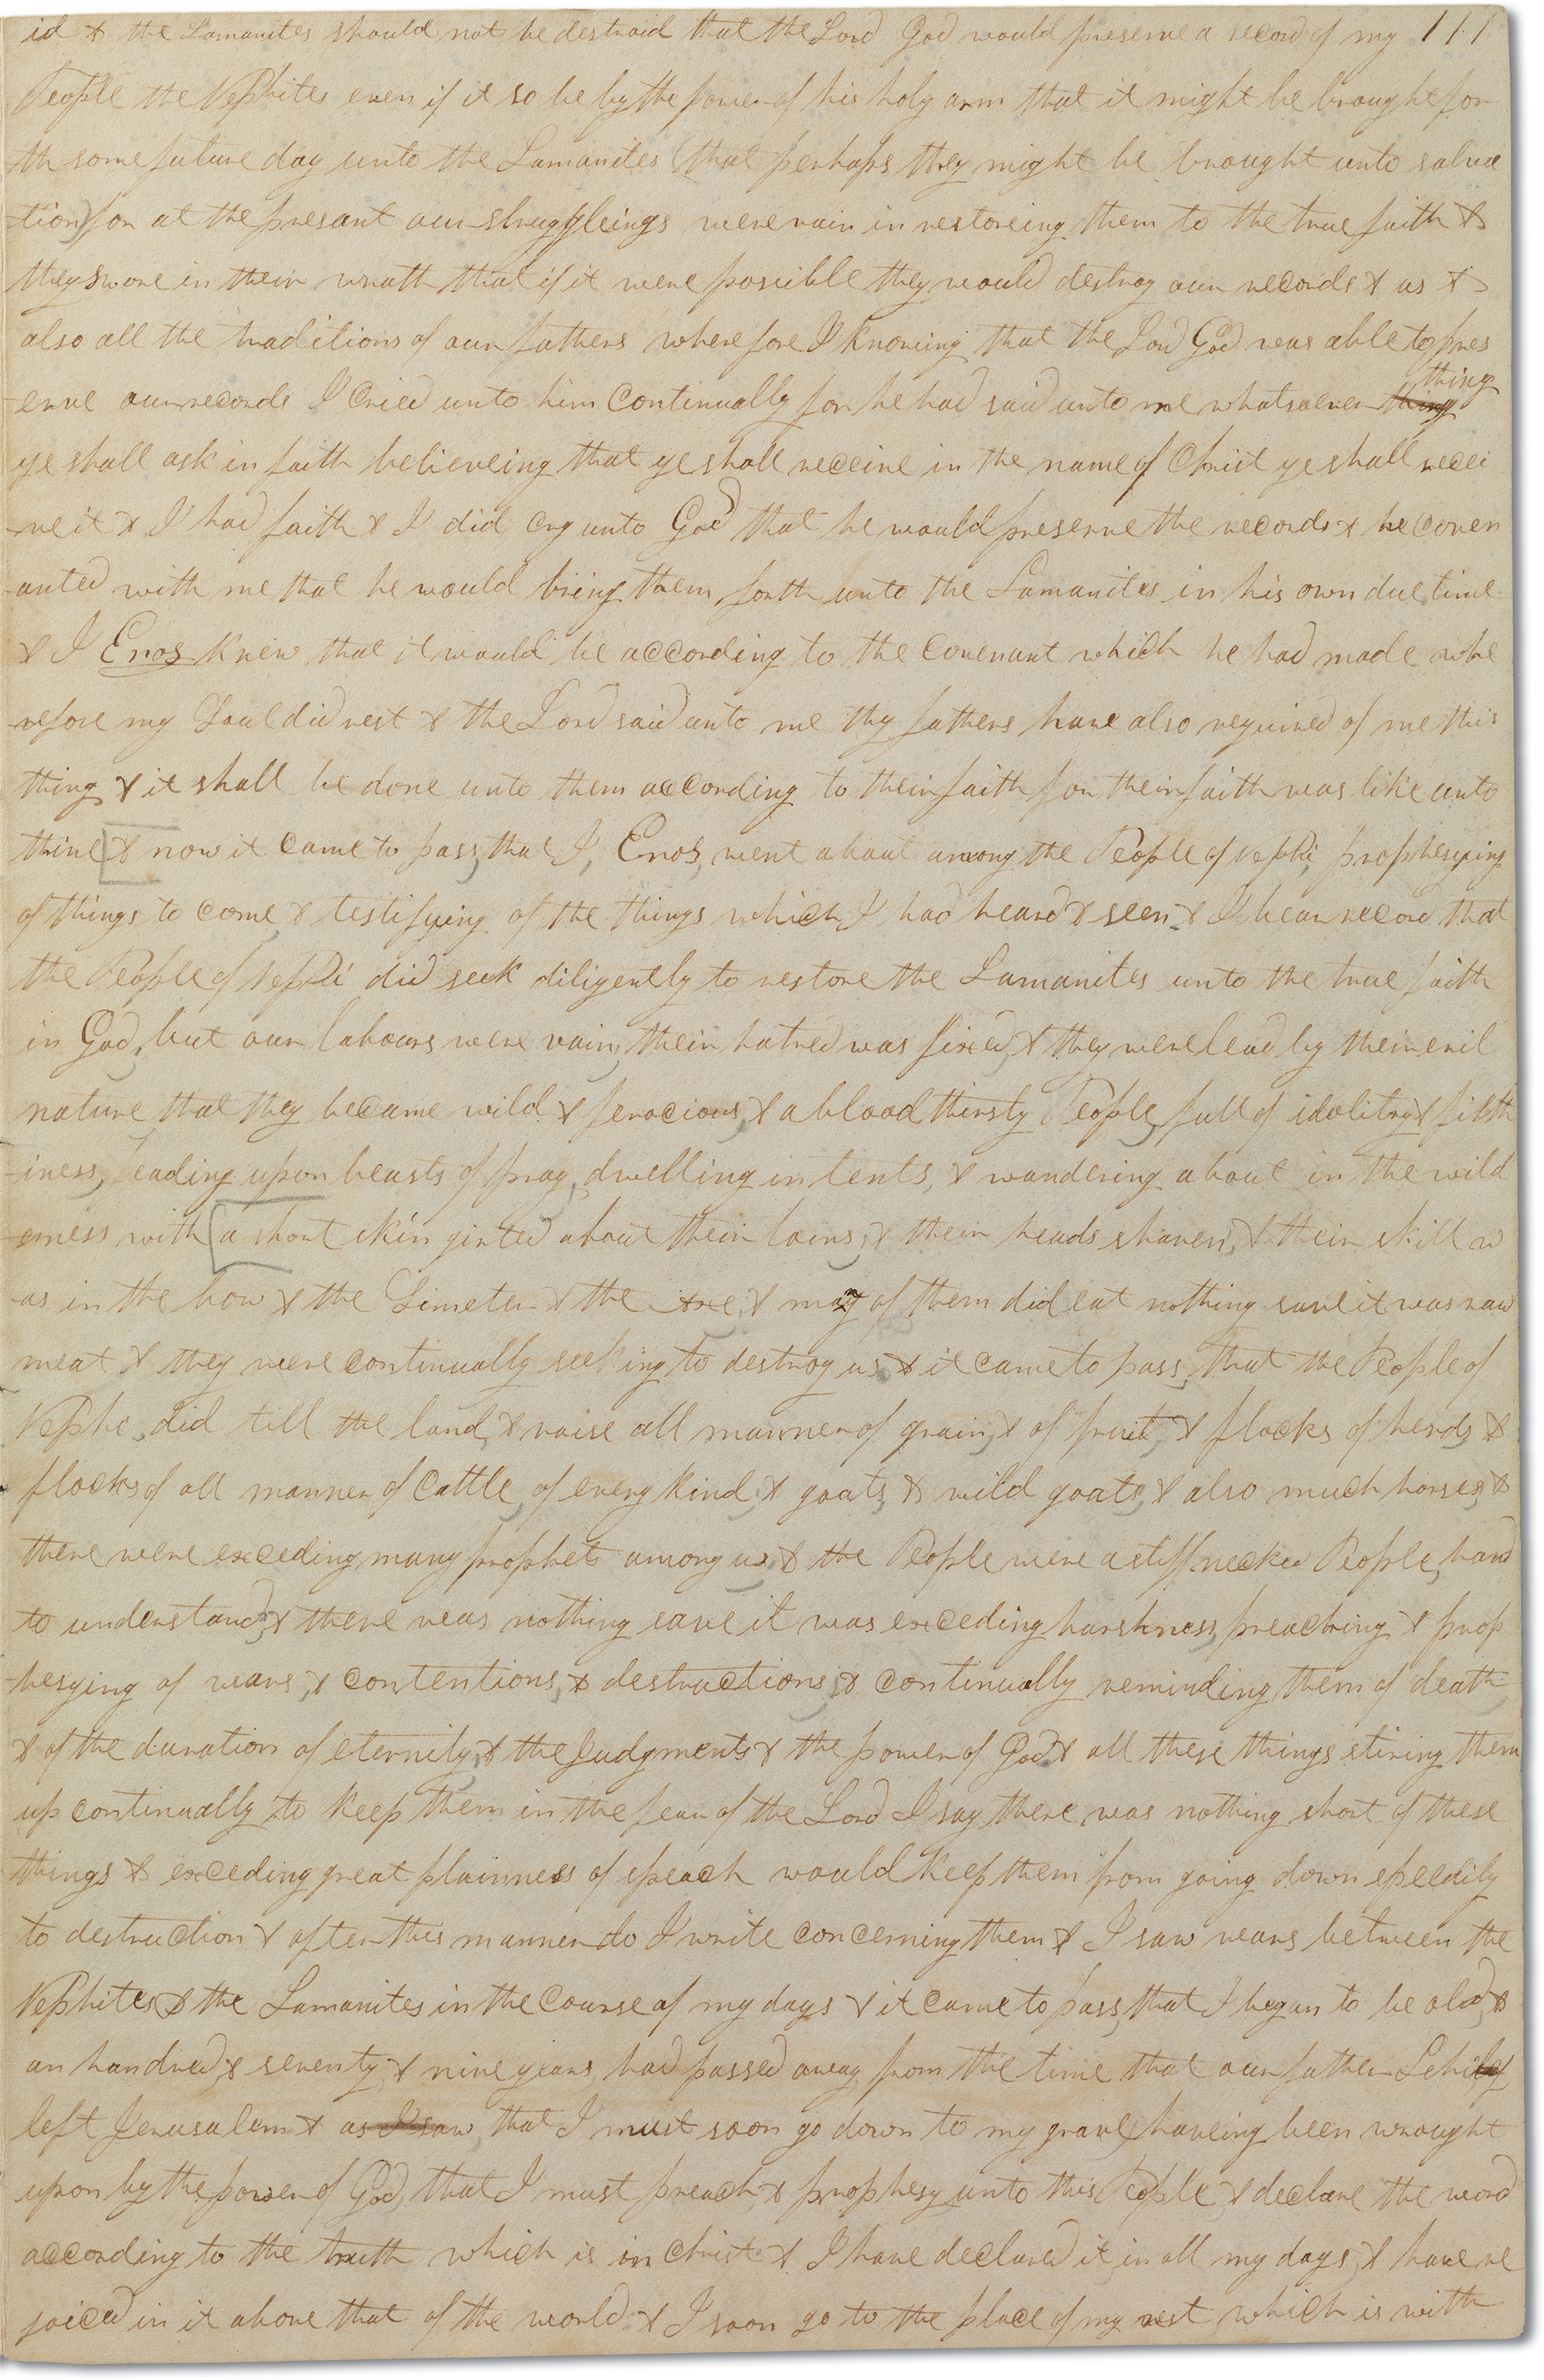 id & the Lamanites should not be destroid that the Lord God would preserve a record of my 111
People the Nephites even if it so be by the power of his holy arm that it might be brought for
-th some future day unto the Lamanites (that perhaps they might be brought unto salva
-tion) for at the presant our struggleings were vain in restoreing them to the true faith &
they swore in their wrath that if it were possible they would destroy our records & us &
also all the traditions of our fathers wherefore I knowing that the Lord God was able to pres
-erve our records I cried unto him continually for he had said unto me whatsoever thing thing
ye shall ask in faith believeing that ye shall receive in the name of Christ ye shall recei
-ve it & I had faith & I did cry unto God that he would preserve the records & he coven
-anted with me that he would bring them forth unto the Lamanites in his own due time
& I Enos knew that it would be according to the covenant which he had made whe
-refore my Soul did rest & the Lord said unto me thy fathers have also required of me this
thing & it shall be done unto them according to their faith for their faith was like unto
thine [& now it came to pass, that I, Enos, went about among the People of Nephi, prophesying
of things to come, & testifying of the things which I had heard & seen. & I bear record that
the People of Nephi did seek diligently to restore the Lamanites unto the true faith
in God, but our labours were vain, their hatred was fixed, & they were lead by their evil
nature that they became wild & ferocious, & a blood thirsty People, full of idolitry & filth
-iness, feading upon beasts of pray, dwelling in tents, & wandering about in the wild
-erness with [a short skin girted about their loins, & their heads shaven, & their skill w
-as in the bow & the Cimeter & the axe. & many of them did eat nothing save it was raw
meat & they were continually seeking to destroy us, & it came to pass, that the People of
Nephi, did till the land, & raise all manner of grain, & of fruit, & flocks of herds, &
flocks of all manner of cattle, of every kind, & goats, & wild goats, & also much horses, &
there were exceding many prophets among us, & the People were a stiffnecked People, hard
to understand, & there was nothing save it was exceding harshness, preaching & prop
-hesying of wars, & contentions, & destructions, & continually reminding them of death
& of the duration of eternity, & the Judgments & the power of God & all these things stiring them
up continually to keep them in the fear of the Lord I say there was nothing short of these
things & exceding great plainness of speach would keep them from going down speedily
to destruction & after this manner do I write concerning them & I saw wars between the
Nephites & the Lamanites in the course of my days & it came to pass, that I began to be old, &
an hundred & seventy & nine years had passed away from the time that our father Lehi
left Jerusalem & as I saw, that I must soon go down to my grave, haveing been wrought
upon by the power of God, that I must preach & prophesy unto this People & declare the word
according to the truth which is in Christ & I have declared it in all my days, & have re
-joiced in it above that of the world. & I soon go to the place of my rest which is with